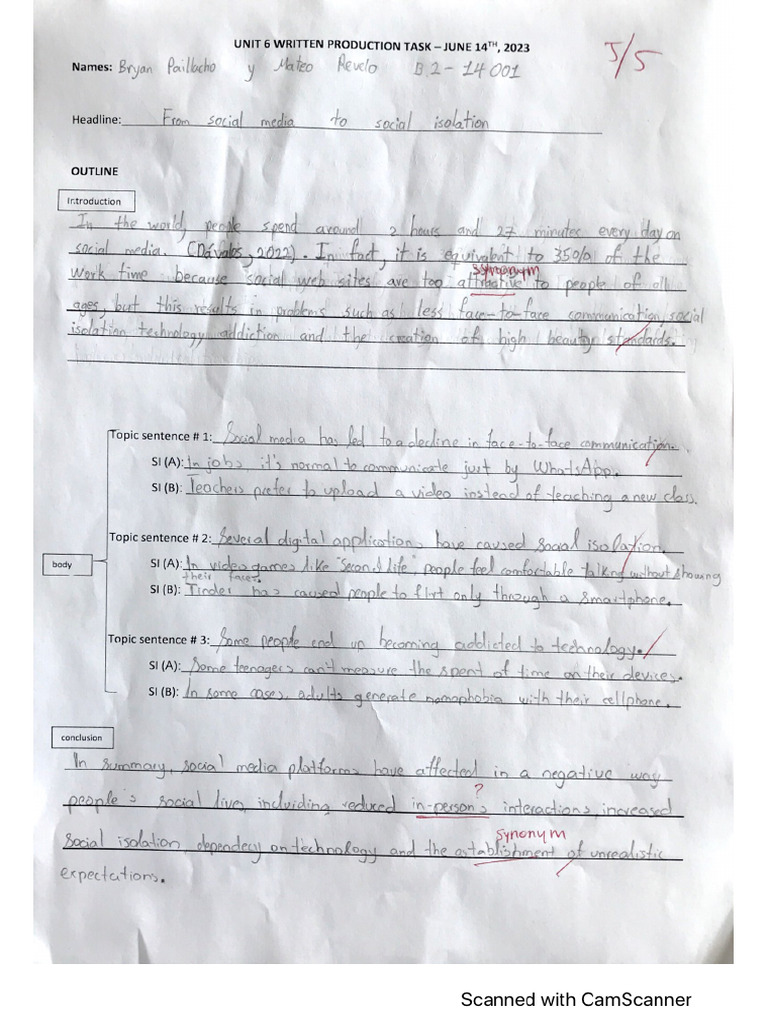 UNIT 6 WRITTEN PRODUCTION TASK – JUNE 14TH, 2023
5/5
Names: Bryan Paillacho y Mateo Revelo B2-14001
Headline: From social media to social isolation
OUTLINE
Introduction
In the world, people spend around 2 hours and 27 minutes every day on
social media. (Dávalos, 2022). In fact, it is equivalent to 350% of the
synonym
work time because social web sites are too attractive to people of all
ages, but this results in problems such as less face-to-face communication, social
isolation technology addiction and the creation of high beauty standards.
Topic sentence # 1: Social media has led to a decline in face-to-face communication.
SI (A): In jobs it's normal to communicate just by WhatsApp.
SI (B): Teachers prefer to upload a video instead of teaching a new class.
Topic sentence # 2: Several digital applications have caused social isolation.
body
SI (A): In video games like "Second Life", people feel comfortable talking without showing
their faces.
SI (B): Tinder has caused people to flirt only through a smartphone.
Topic sentence # 3: Some people end up becoming addicted to technology.
SI (A): Some teenagers can't measure the spent of time on their devices.
SI (B): In some cases, adults generate nomophobia with their cellphone.
conclusion
In summary, social media platforms have affected in a negative way
?
people's social lives, incluiding reduced in-person's interactions, increased
synonym
social isolation, dependecy on technology and the establishment of unrealistic
expectations.
Scanned with CamScanner